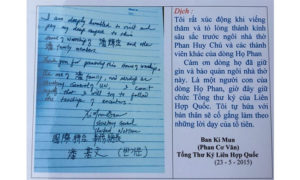 I am deeply humbled to visit and
pay my deep respect to this
House of worship of 潘輝注 and other
潘 family members.
Thank you for preserving this House of worship.
As one of 潘 family, now serving as
Secretary General of UN, I commit
myself that I will try to follow
the teachings of ancestors
Secretary General
United Nations
潘基文
Dịch :
Tôi rất xúc động khi viếng
thăm và tỏ lòng thành kính
sâu trước ngôi nhà thờ
Phan Huy Chú và các thành
viên khác của dòng họ Phan.
Cảm ơn dòng họ đã giữ
gìn và bảo quản ngôi nhà thờ
này. Là một người con của
dòng họ Phan, giờ đây giữ
chức Tổng thư ký của Liên
Hợp Quốc. Tôi tự hứa với
bản thân sẽ cố gắng làm theo
những lời dạy của tổ tiên.
Ban Ki Mun
(Phan Cơ Văn)
Tổng Thư Ký Liên Hợp Quốc
(23 - 5 - 2015)